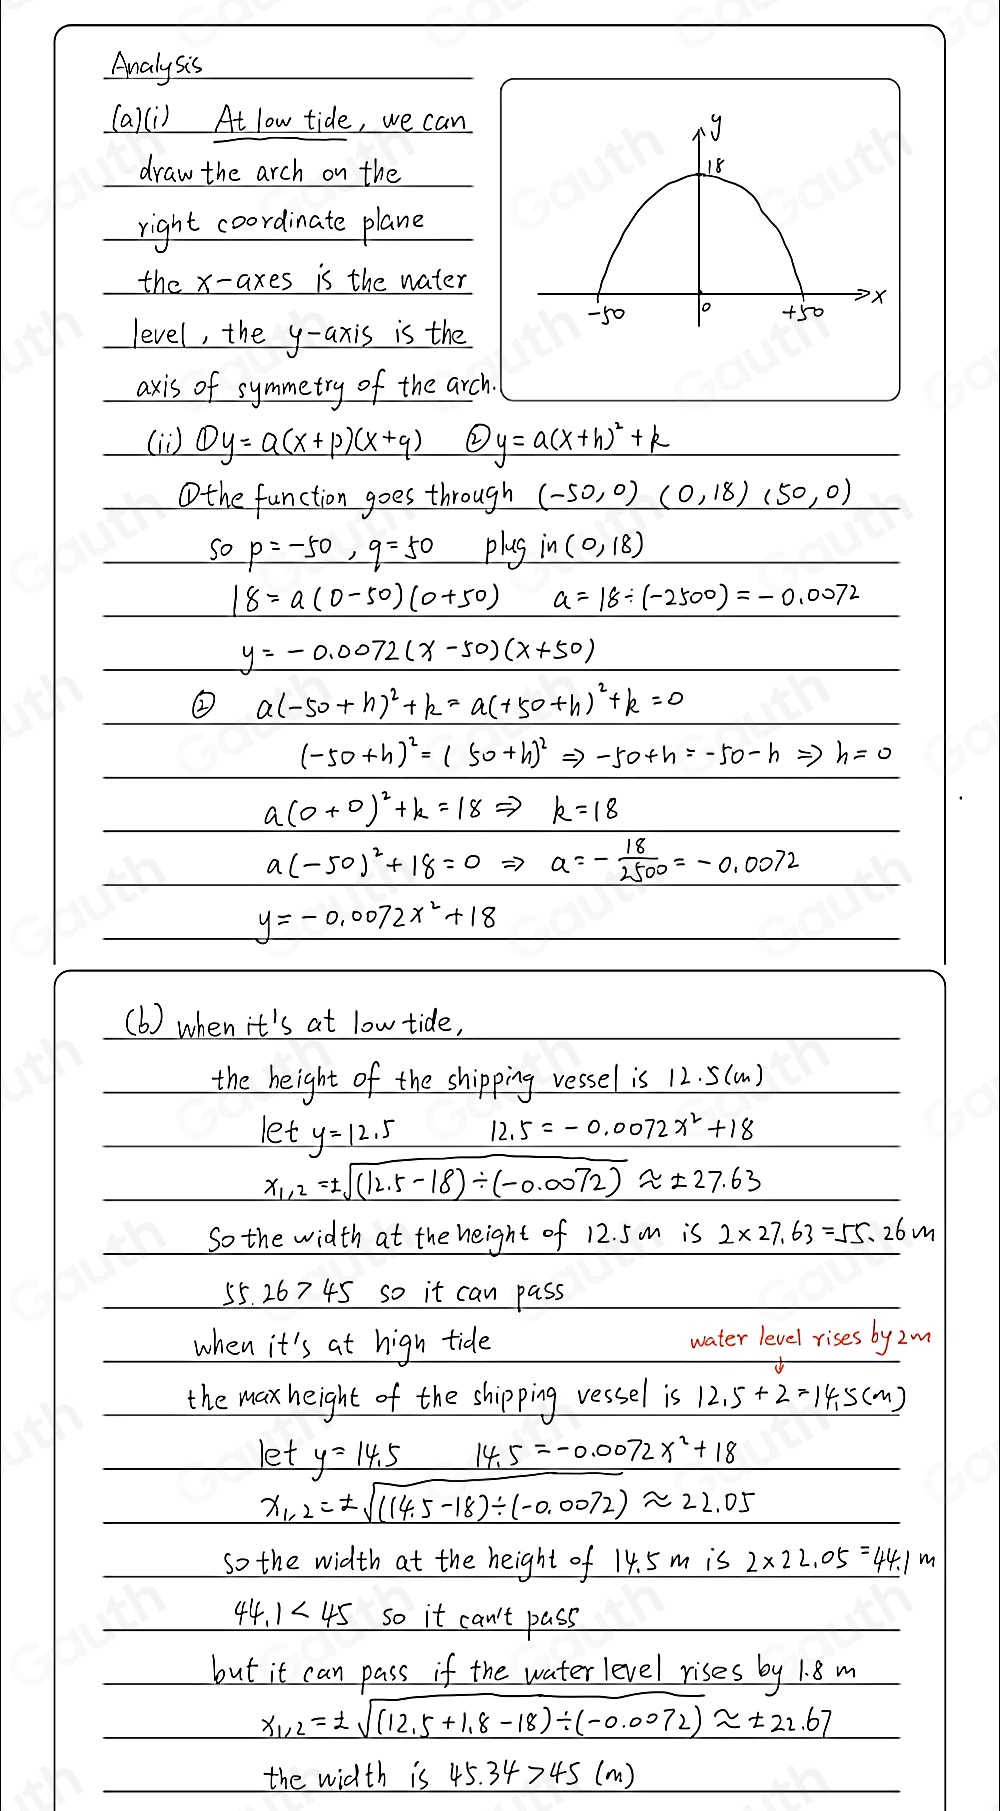 Analysis
(a)(i) At low tide, we can
draw the arch on the
right coordinate plane
the x-axes is the water
level, the y-axis is the
axis of symmetry of the arch.
y
18
-50 0 +50 x
(ii) ① y = a(x+p)(x+q) ② y = a(x+h)² + k
① the function goes through (-50,0) (0,18) (50,0)
so p = -50, q = 50 plug in (0,18)
18 = a(0-50)(0+50) a = 18 ÷ (-2500) = -0.0072
y = -0.0072(x-50)(x+50)
② a(-50+h)² + k = a(+50+h)² + k = 0
(-50+h)² = (50+h)² ⇒ -50+h = -50-h ⇒ h = 0
a(0+0)² + k = 18 ⇒ k = 18
a(-50)² + 18 = 0 ⇒ a = -18/2500 = -0.0072
y = -0.0072x² + 18
(b) when it's at low tide,
the height of the shipping vessel is 12.5(m)
let y = 12.5 12.5 = -0.0072x² + 18
x₁,₂ = ±√((12.5-18) ÷ (-0.0072)) ≈ ±27.63
So the width at the height of 12.5m is 2×27.63 = 55.26m
55.26 > 45 so it can pass
when it's at high tide
water level rises by 2m
↓
the max height of the shipping vessel is 12.5 + 2 = 14.5(m)
let y = 14.5 14.5 = -0.0072x² + 18
x₁,₂ = ±√((14.5-18) ÷ (-0.0072)) ≈ 22.05
so the width at the height of 14.5m is 2×22.05 = 44.1m
44.1 < 45 so it can't pass
but it can pass if the water level rises by 1.8 m
x₁,₂ = ±√((12.5+1.8-18) ÷ (-0.0072)) ≈ ±22.67
the width is 45.34 > 45 (m)